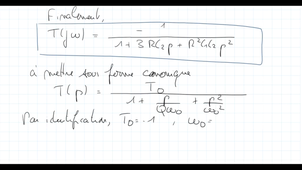 Finalement,
T(jω) = -1 / (1 + 3 RC₂p + R²C₁C₂p²)
à mettre sous forme canonique
T(p) = T₀ / (1 + p/(Qω₀) + p²/ω₀²)
Par identification, T₀ = -1 , ω₀ =